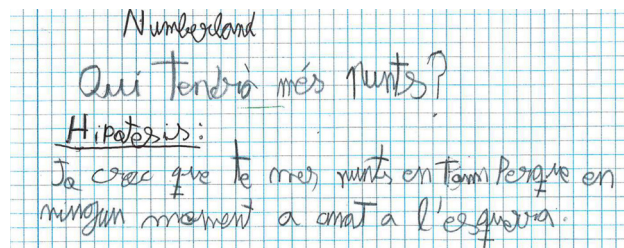 Numberland
Qui Tendrà més punts?
Hipotesis:
Jo crec que te mes punts en Tom Perque en
ningun moment a anat a l'esquerra.